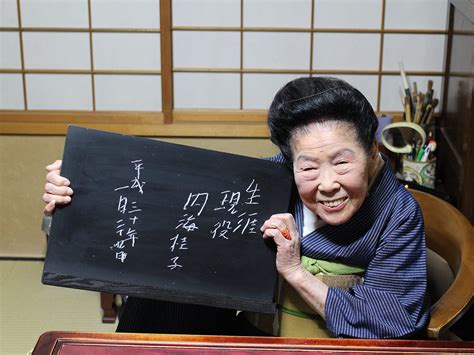 生涯
現役
内海桂子
平成三十年
一月二十